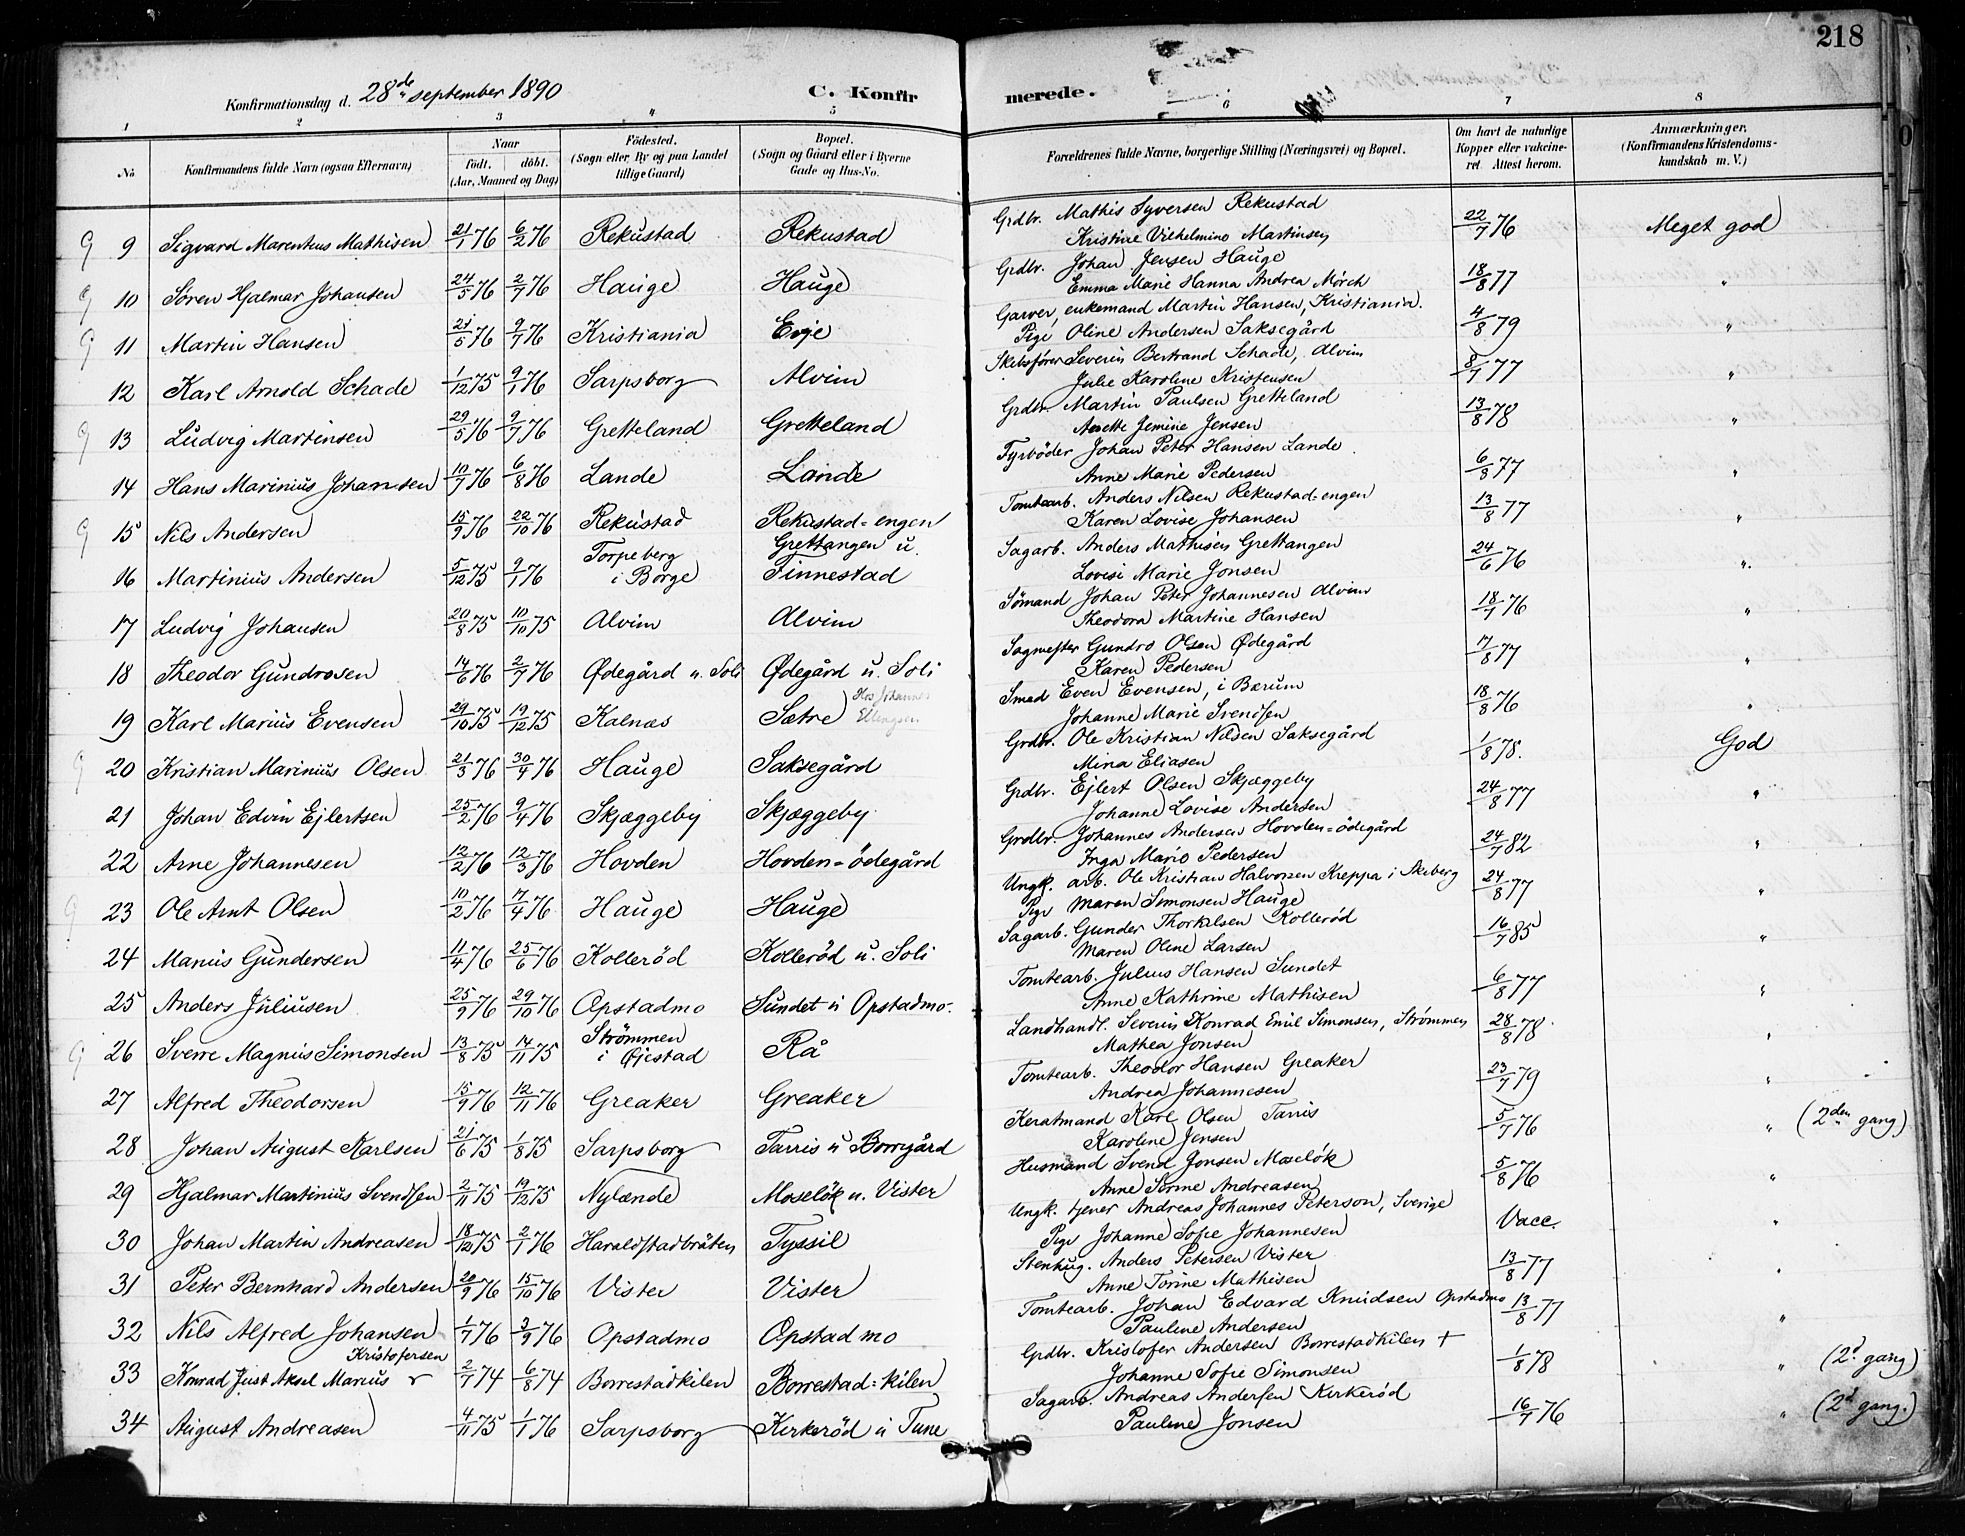 218
Konfirmationsdag d. 28de september 1890
C. Konfirmerede.
1 2 3 4 5 6 7 8
No
Konfirmandens fulde Navn (ogsaa Efternavn)
Naar
født. døbt.
(Aar, Maaned og Dag)
Fødested.
(Sogn eller By og paa Landet tillige Gaard)
Bopæl.
(Sogn og Gaard eller i Byerne Gade og Hus-No.
Forældrenes fulde Navne, borgerlige Stilling (Næringsvei) og Bopæl.
Om havt de naturlige Kopper eller vakcineret. Attest herom.
Anmærkninger.
(Konfirmandens Kristendomskundskab m. V.)
9 Sigvard Marentius Mathisen 21/1 76 6/2 76 Rekustad Rekustad Grdbr. Mathis Syversen Rekustad 22/7 76 Meget god
Kristine Vilhelmine Martinsen
10 Søren Hjalmar Johansen 24/5 76 2/7 76 Hauge Hauge Grdbr. Johan Jensen Hauge 18/8 77 "
Emma Marie Hanna Andrea Mørch
11 Martin Hansen 21/5 76 9/7 76 Kristiania Evje Garver, enkemand Martin Hansen, Kristiania. 4/8 79 "
Pige Oline Andersen Saksegård
12 Karl Arnold Schade 1/12 75 9/1 76 Sarpsborg Alvim Skibsfører Severin Bertrand Schade, Alvim 8/7 77 "
Julie Karoline Kristensen
13 Ludvig Martinsen 29/5 76 9/7 76 Gretteland Gretteland Grdbr. Martin Paulsen Gretteland 13/8 78 "
Anette Jemine Jensen
14 Hans Marinius Johansen 10/7 76 6/8 76 Lande Lande Fyrbøder Johan Peter Hansen Lande 6/8 77 "
Anne Marie Pedersen
15 Nils Andersen 15/9 76 22/10 76 Rekustad Rekustad-engen Tomtearb. Anders Nilsen Rekustad-engen 13/8 77 "
Karen Lovise Johansen
16 Martinius Andersen 5/12 75 9/1 76 Torpeberg i Borge Grettangen u. Finnestad Sagarb. Anders Mathisen Grettangen 24/6 76 "
Lovise Marie Jonsen
17 Ludvig Johansen 20/8 75 10/10 75 Alvim Alvim Sømand Johan Peter Johannesen Alvim 18/7 76 "
Theodora Martine Hansen
18 Theodor Gundrosen 14/6 76 2/7 76 Ødegård u. Soli Ødegård u. Soli Sagmester Gundro Olsen Ødegård 17/8 77 "
Karen Pedersen
19 Karl Marius Evensen 29/10 75 19/12 75 Kalnæs Sætre Hos Johannes Ellingsen Smed Even Evensen, i Bærum 18/8 76 "
Johanne Marie Svendsen
20 Kristian Marinius Olsen 21/3 76 30/4 76 Hauge Saksegård Grdbr. Ole Kristian Nilsen Saksegård 1/8 78. God
Mina Eliasen
21 Johan Edvin Ejlertsen 25/2 76 9/4 76 Skjæggeby Skjæggeby Grdbr. Ejlert Olsen Skjæggeby 24/8 77 "
Johanne Lovise Andersen
22 Arne Johannesen 12/2 76 12/3 76 Hovden Hovden-ødegård Grdbr. Johannes Andersen Hovden-ødegård 24/7 82 "
Inga Marie Pedersen
23 Ole Arnt Olsen 10/2 76 17/4 76 Hauge Hauge Ungk. arb. Ole Kristian Halvorsen Kreppa i Skeberg 24/8 77 "
Pige Maren Simonsen Hauge
24 Marius Gundersen 11/4 76 25/6 76 Kollerød Kollerød u. Soli Sagarb. Gunder Thorkilsen Kollerød 16/7 85 "
Maren Oline Larsen
25 Anders Juliusen 25/9 76 29/10 76 Opstadmo Sundet u Opstadmo. Tomtearb. Julius Hansen Sundet 6/8 77 "
Anne Kathrine Mathisen
26 Sverre Magnus Simonsen 13/8 75 14/11 75 Strømmen i Øjestad Rå Landhandl. Severin Konrad Emil Simonsen, Strømmen 28/8 78. "
Mathea Jonsen
27 Alfred Theodorsen 15/9 76 12/11 76 Greaker Greaker Tomtearb. Theodor Hansen Greaker 23/7 79 "
Andrea Johannesen
28 Johan August Karlsen 21/6 75 1/8 75 Sarpsborg Tarris u Borregård Karl Olsen Tarris 5/7 76 " (2den gang)
Karoline Jensen
29 Hjalmar Martinius Svendsen 2/11 75 19/12 75 Nylænde Moseløk u. Vister Husmand Svend Jonsen Moseløk 5/8 76 "
Anne Sirine Andreasen
30 Johan Martin Andreasen 18/12 75 2/1 76 Haraldstadbråten Tyssil Ungk. tjener Andreas Johannes Peterson, Sverige Vacc. "
Pige Johanne Sofie Johannesen
31 Peter Bernhard Andersen 20/9 76 15/10 76 Vister Vister Stenhug. Anders Petersen Vister 13/8 77 "
Anne Torine Mathisen
32 Nils Alfred Johansen 1/7 76 3/9 76 Opstadmo Opstadmo Tomtearb. Johan Edvard Knudsen Opstadmo 13/8 77 "
Pauline Andersen
33 Konrad Just Aksel Marius Kristofersen 2/7 74 6/8 74 Borrestadkilen Borrestad-kilen Grdbr. Kristofer Andersen Borrestadkilen + 1/8 78 " (2d. gang)
Johanne Sofie Simonsen
34 August Andreasen 4/11 75 1/1 76 Sarpsborg Kirkerød u Tune Sagarb. Andreas Andersen Kirkerød 16/7 76 " (2d gang.)
Pauline Jonsen